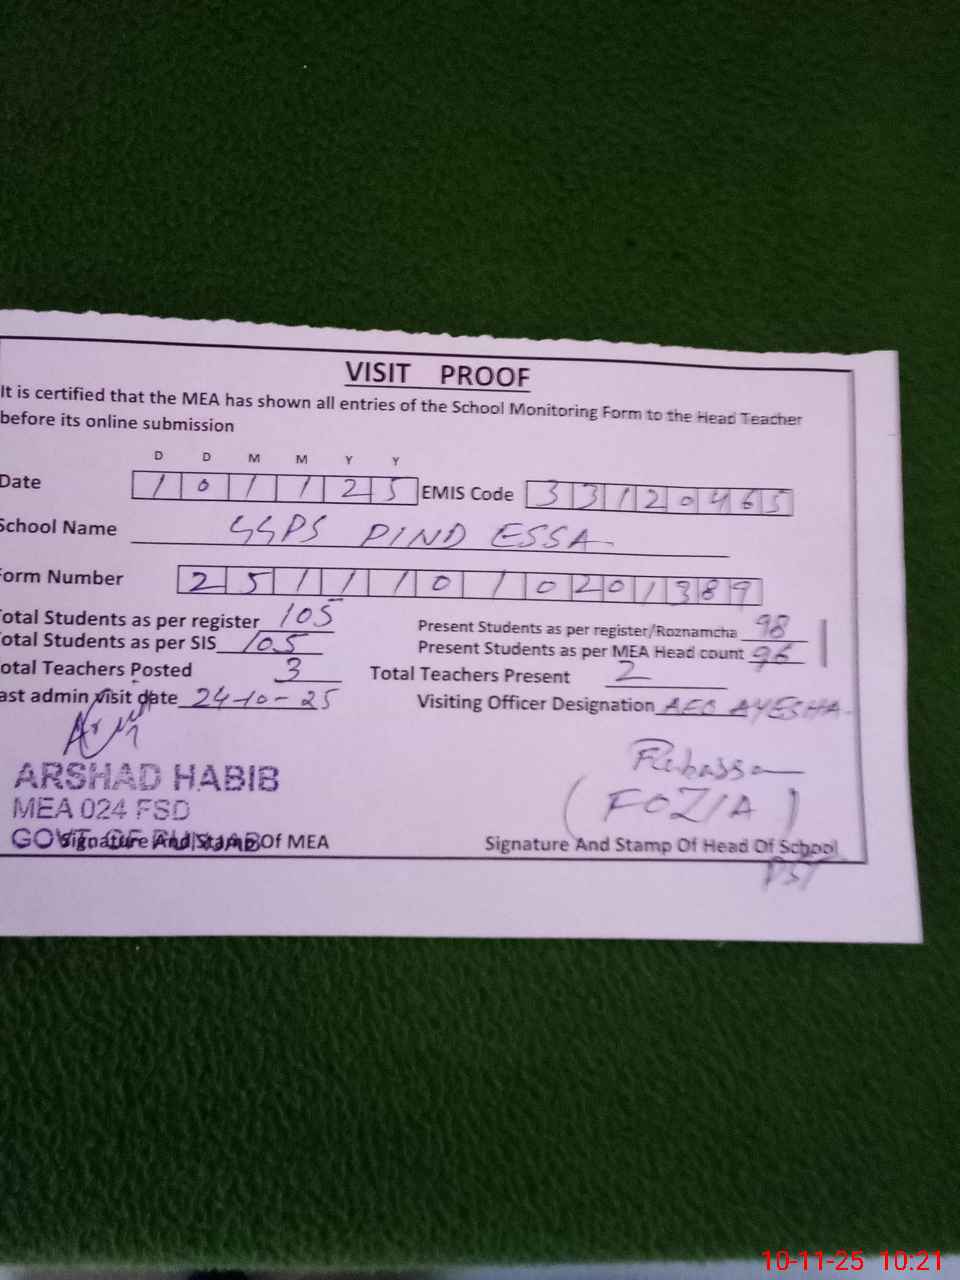 VISIT PROOF
It is certified that the MEA has shown all entries of the School Monitoring Form to the Head Teacher
before its online submission
D D M M Y Y
Date 1 0 1 1 2 5 EMIS Code 3 3 1 2 0 4 6 5
School Name GGPS PIND ESSA
Form Number 2 5 1 1 1 0 1 0 2 0 1 3 8 9
Total Students as per register 105 Present Students as per register/Roznamcha 98
Total Students as per SIS 105 Present Students as per MEA Head count 96
Total Teachers Posted 3 Total Teachers Present 2
Last admin visit date 24-10-25 Visiting Officer Designation AEO AYESHA
ARSHAD HABIB
MEA 024 FSD
GOVT OF PUNJAB
(FOZIA)
Signature And Stamp Of MEA Signature And Stamp Of Head Of School
PST
10-11-25 10:21